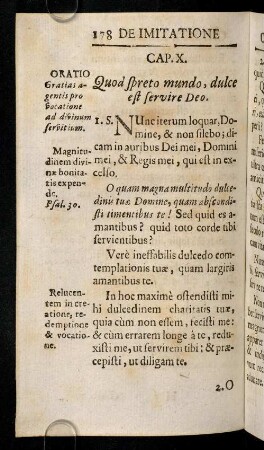 178 DE IMITATIONE
CAP. X.
ORATIO
Gratias a-
gentis pro
vocatione
ad divinum
servitium.
Quod spreto mundo, dulce
est servire Deo.
1. S. NUnc iterum loquar, Do-
mine, & non silebo; di-
cam in auribus Dei mei, Domini
mei, & Regis mei, qui est in ex-
celso.
Magnitu-
dinem divi-
næ bonita-
tis expen-
de.
Psal. 30.
O quam magna multitudo dulce-
dinis tuæ Domine, quam abscondi-
sti timentibus te! Sed quid es a-
mantibus? quid toto corde tibi
servientibus?
Verè ineffabilis dulcedo con-
templationis tuæ, quam largiris
amantibus te.
Relucen-
tem in cre-
atione, re-
demptione
& vocatio-
ne.
In hoc maximè ostendisti mi-
hi dulcedinem charitatis tuæ,
quia cùm non essem, fecisti me:
& cùm errarem longe à te, redu-
xisti me, ut servirem tibi: & præ-
cepisti, ut diligam te.
2. O